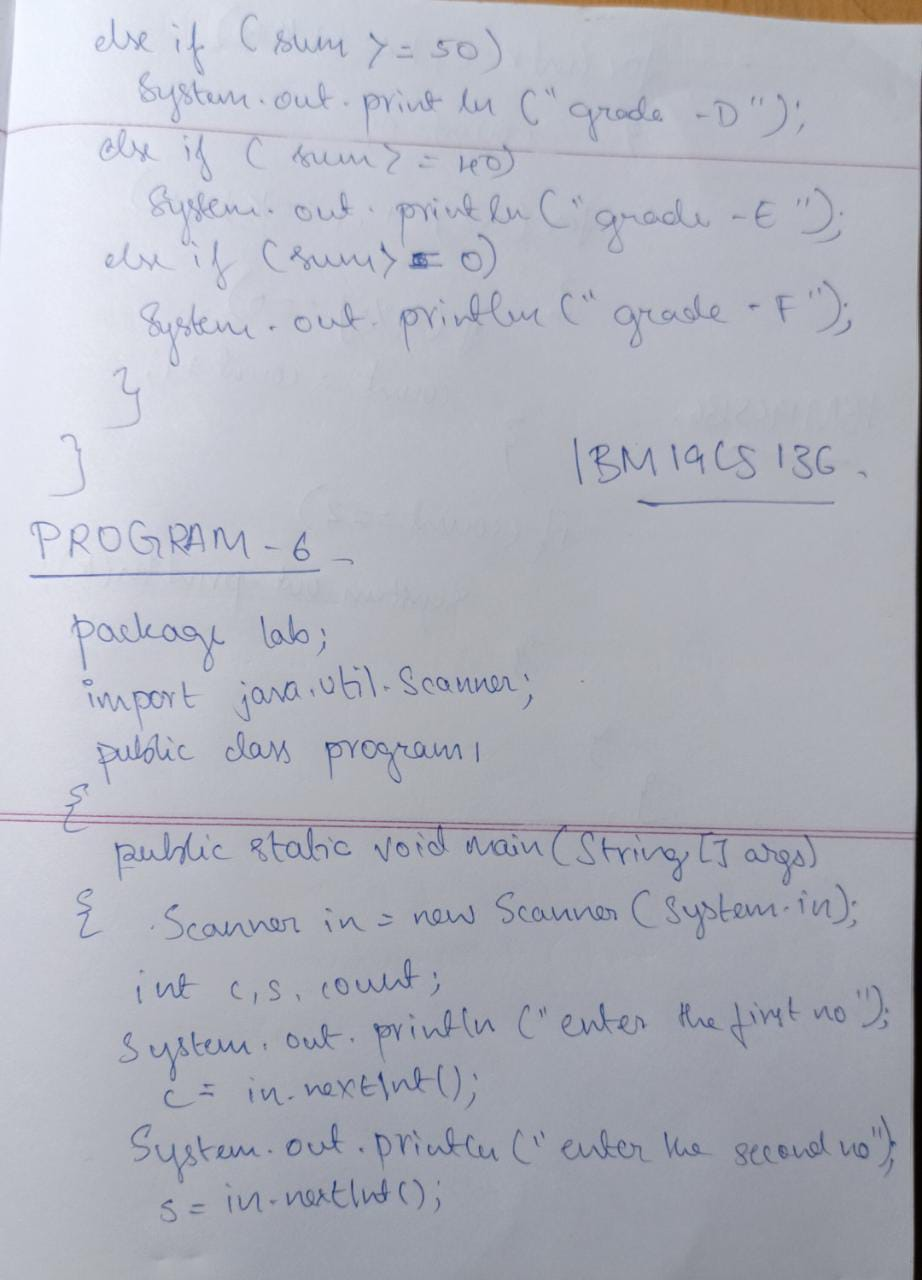 else if (sum >= 50)
System.out.println ("grade -D");
else if (sum >= 40)
System.out.println ("grade -E");
else if (sum >= 0)
System.out.println ("grade - F");
}
}
1BM19CS136.
PROGRAM - 6
package lab;
import java.util.Scanner;
public class program1
{
public static void main(String[] args)
{ Scanner in = new Scanner (System.in);
int c, s, count;
System.out.println ("enter the first no");
c = in.nextInt();
System.out.println ("enter the second no");
s = in.nextInt();